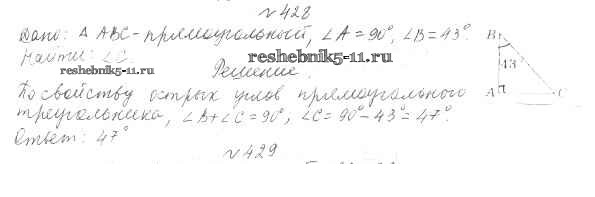 № 428
Дано: Δ ABC - прямоугольный, ∠A = 90°, ∠B = 43°.
Найти: ∠C.
reshebnik5-11.ru
reshebnik5-11.ru
Решение.
По свойству острых углов прямоугольного
треугольника, ∠B + ∠C = 90°, ∠C = 90° - 43° = 47°.
Ответ: 47°
B
43°
A
C
№ 429